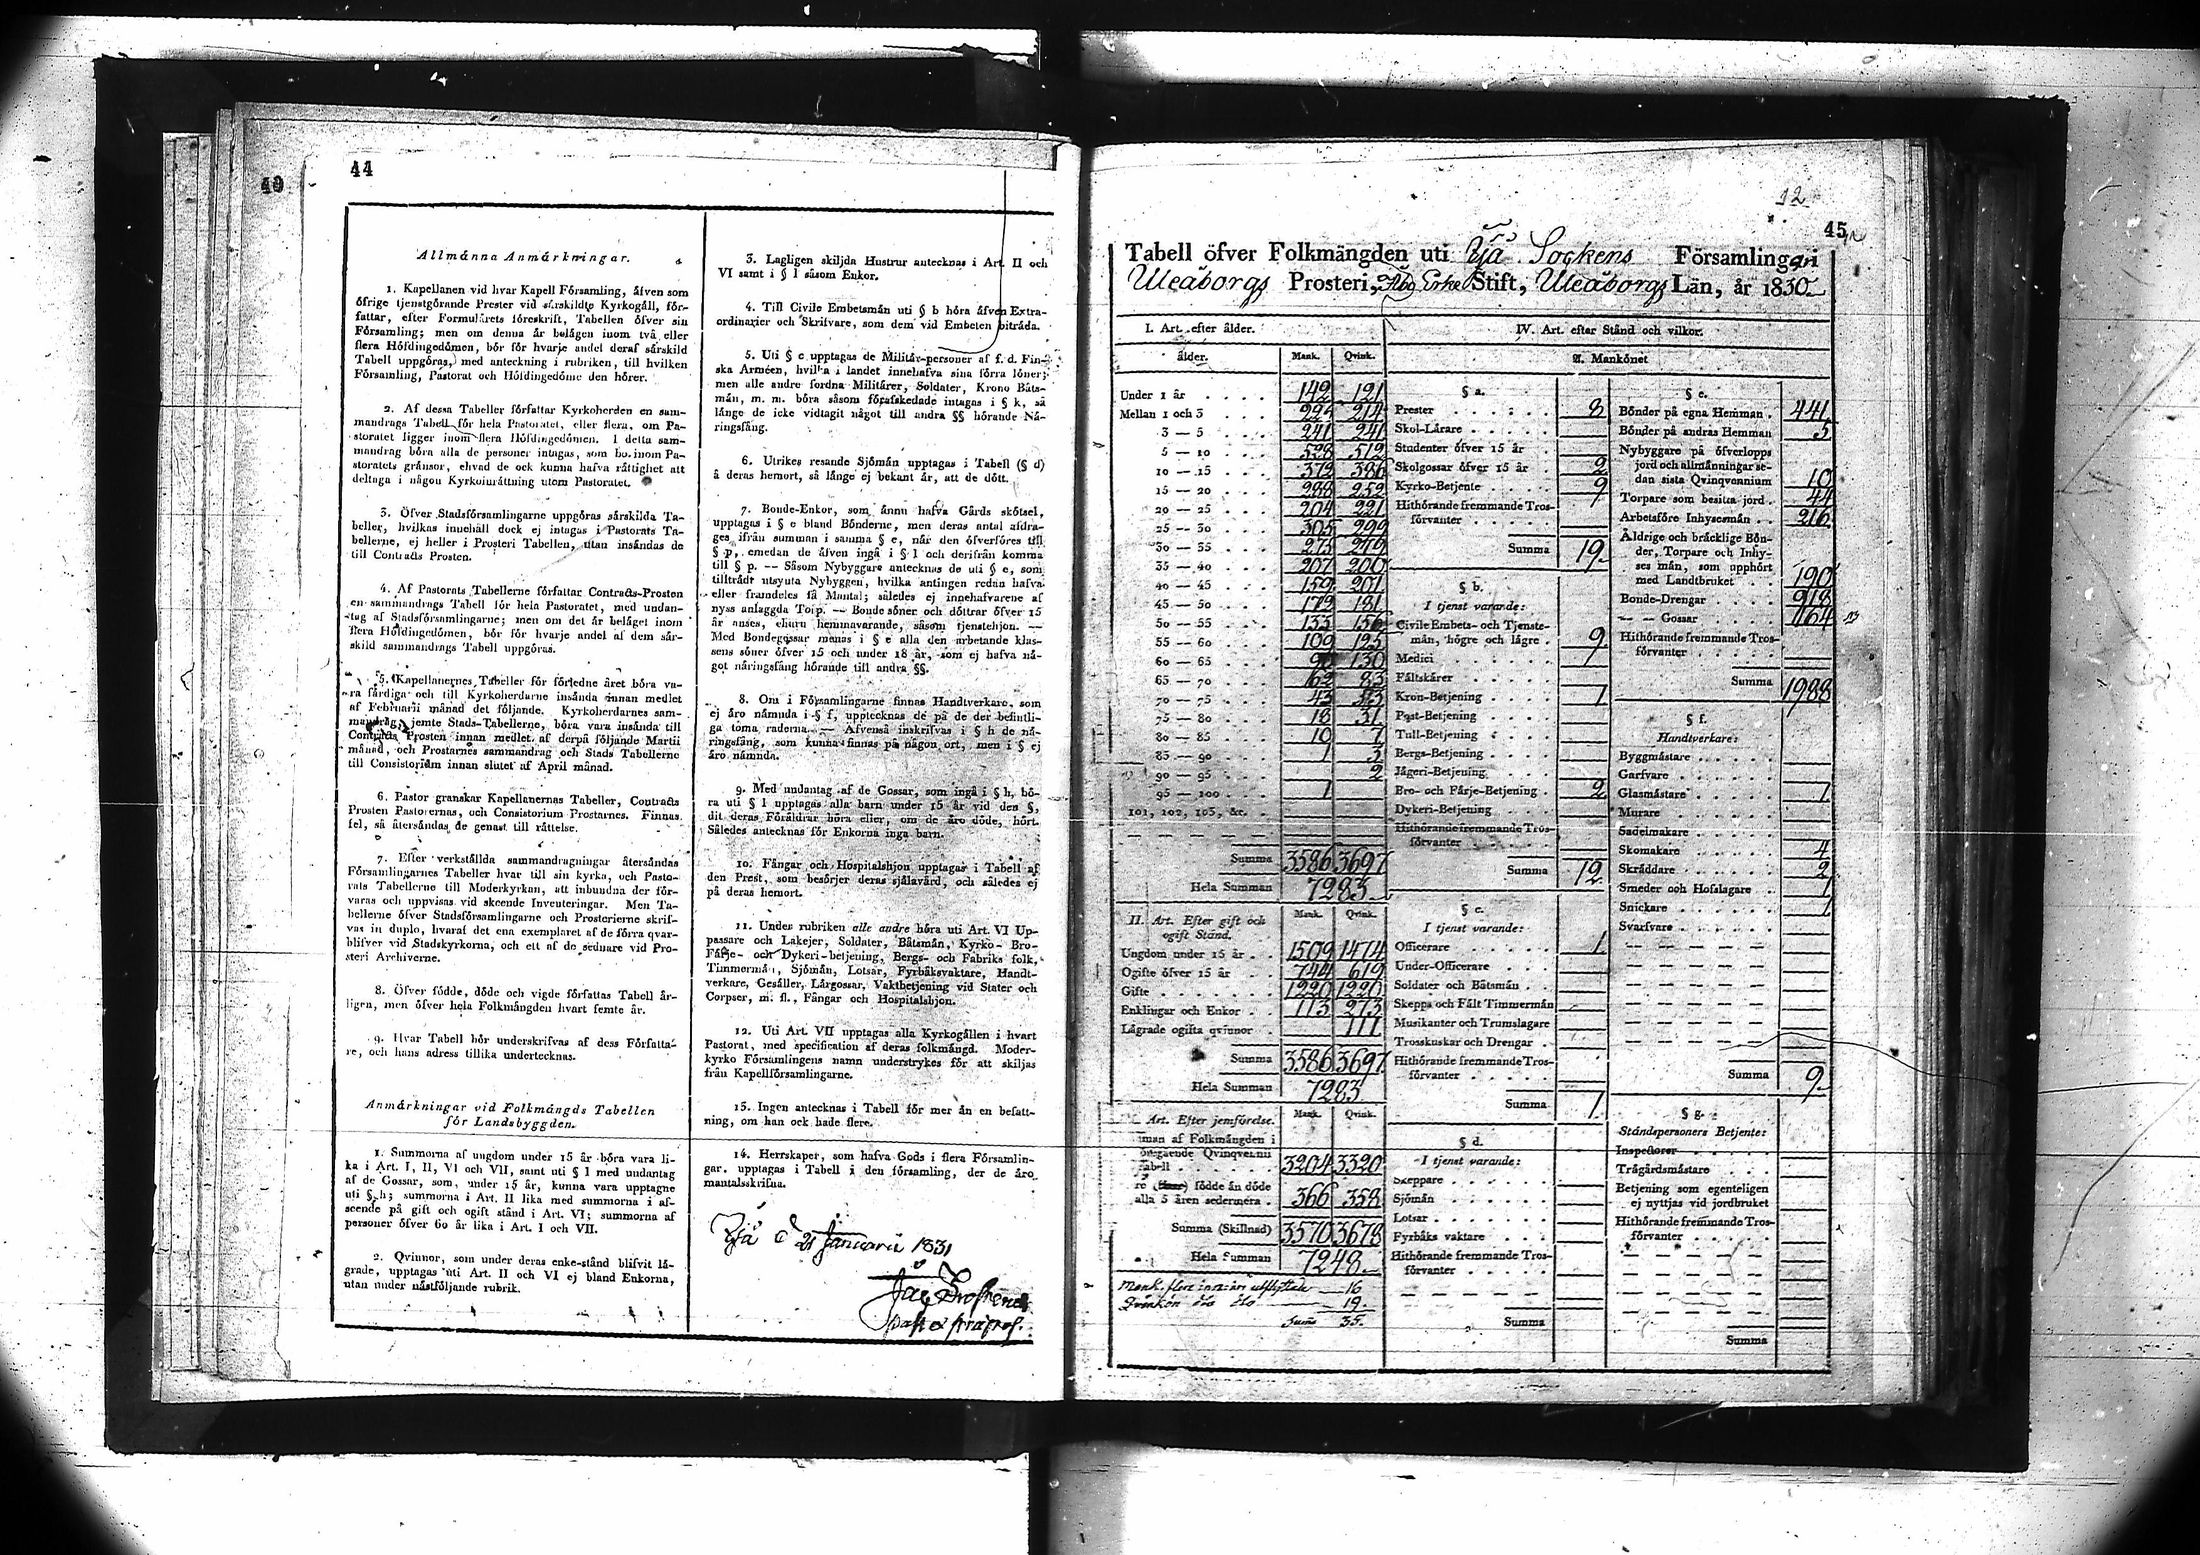 40
44
Allmänna Anmärkningar.
1. Kapellanen vid hvar Kapell Församling, äfven som
öfrige tjenstgörande Prester vid särskildte Kyrkogäll, för-
fattar, efter Formulärets föreskrift, Tabellen öfver sin
Församling; men om denna är belägen inom två eller
flera Höfdingedömen, bör för hvarje andel deraf särskild
Tabell uppgöras, med anteckning i rubriken, till hvilken
Församling, Pastorat och Höfdingedöme den hörer.
2. Af dessa Tabeller författar Kyrkoherden en sam-
mandrags Tabell för hela Pastoratet, eller flera, om Pa-
storatet ligger inom flera Höfdingedömen. I detta sam-
mandrag böra alla de personer intagas, som bo inom Pa-
storatets gränsor, ehvad de ock kunna hafva rättighet att
deltaga i någon Kyrkoinrättning utom Pastoratet.
3. Öfver Stadsförsamlingarne uppgöras särskilda Ta-
beller, hvilkas innehåll dock ej intagas i Pastorats Ta-
bellerne, ej heller i Prosteri Tabellen, utan insändas de
till Contracts Prosten.
4. Af Pastorats Tabellerne författar Contracts-Prosten
en sammandrags Tabell för hela Pastoratet, med undan-
tag af Stadsförsamlingarne; men om det är beläget inom
flera Höfdingedömen, bör för hvarje andel af dem sär-
skild sammandrags Tabell uppgöras.
5. Kapellanernes Tabeller för förledne året böra va-
ra färdiga och till Kyrkoherdarne insända innan medlet
af Februarii månad det följande. Kyrkoherdarnes sam-
mandrag, jemte Stads-Tabellerne, böra vara insända till
Contracts Prosten innan medlet af derpå följande Martii
månad, och Prostarnes sammandrag och Stads Tabellerne
till Consistorium innan slutet af April månad.
6. Pastor granskar Kapellanernas Tabeller, Contracts
Prosten Pastorernas, och Consistorium Prostarnes. Finnas
fel, så återsändas de genast till rättelse.
7. Efter verkställda sammandragningar återsändas
Församlingarnes Tabeller hvar till sin kyrka, och Pasto-
rats Tabellerne till Moderkyrkan, att inbundna der för-
varas och uppvisas vid skeende Inventeringar. Men Ta-
bellerne öfver Stadsförsamlingarne och Prosterierne skrif-
vas in duplo, hvaraf det ena exemplaret af de förra qvar-
blifver vid Stadskyrkorna, och ett af de sednare vid Pro-
steri Archiverne.
8. Öfver födde, döde och vigde författas Tabell år-
ligen, men öfver hela Folkmängden hvart femte år.
9. Hvar Tabell bör underskrifvas af dess Författa-
re, och hans adress tillika undertecknas.
Anmärkningar vid Folkmängds Tabellen
för Landsbyggden.
1. Summorna af ungdom under 15 år böra vara li-
ka i Art. I, II, VI och VII, samt uti § l med undantag
af de Gossar, som, under 15 år, kunna vara upptagne
uti § h; summorna i Art. II lika med summorna i af-
seende på gift och ogift stånd i Art. VI; summorna af
personer öfver 60 år lika i Art. I och VII.
2. Qvinnor, som under deras enke-stånd blifvit lä-
grade, upptagas uti Art. II och VI ej bland Enkorna,
utan under nästföljande rubrik.
3. Lagligen skiljda Hustrur antecknas i Art. II och
VI samt i § l såsom Enkor.
4. Till Civile Embetsmän uti § b höra äfven Extra-
ordinarier och Skrifvare, som dem vid Embeten biträda.
5. Uti § c upptagas de Militär-personer af f. d. Fin-
ska Arméen, hvilka i landet innehafva sina förra löner;
men alle andre fordna Militärer, Soldater, Krono Båts-
män, m. m. böra såsom förafskedade intagas i § k, så
länge de icke vidtagit något till andra §§ hörande Nä-
ringsfång.
6. Utrikes resande Sjömän upptagas i Tabell (§ d)
å deras hemort, så länge ej bekant är, att de dött.
7. Bonde-Enkor, som ännu hafva Gårds skötsel,
upptagas i § e bland Bönderne, men deras antal afdra-
ges ifrån summan i samma § e, när den öfverföres till
§ p, emedan de äfven ingå i § l och derifrån komma
till § p. — Såsom Nybyggare antecknas de uti § e, som
tillträdt utsynta Nybyggen, hvilka antingen redan hafva
eller framdeles få Mantal; således ej innehafvarene af
nyss anlaggda Torp. — Bonde söner och döttrar öfver 15
år anses, ehuru hemmavarande, såsom tjenstehjon. —
Med Bondegossar menas i § e alla den arbetande klas-
sens söner öfver 15 och under 18 år, som ej hafva nå-
got näringsfång hörande till andra §§.
8. Om i Församlingarne finnas Handtverkare, som
ej äro nämnda i § f, upptecknas de på de der befintli-
ga toma raderna. — Äfvenså inskrifvas i § h de nä-
ringsfång, som kunna finnas på någon ort, men i § ej
äro nämnda.
9. Med undantag af de Gossar, som ingå i § h, bö-
ra uti § l upptagas alla barn under 15 år vid den §,
dit deras Föräldrar höra eller, om de äro döde, hört.
Således antecknas för Enkorna inga barn.
10. Fångar och Hospitalshjon upptagas i Tabell af
den Prest, som besörjer deras själavård, och således ej
på deras hemort.
11. Under rubriken alle andre höra uti Art. VI Up-
passare och Lakejer, Soldater, Båtsmän, Kyrko- Bro-
Färje- och Dykeri-betjening, Bergs- och Fabriks folk,
Timmermän, Sjömän, Lotsar, Fyrbåksvaktare, Handt-
verkare, Gesäller, Lärgossar, Vaktbetjening vid Stater och
Corpser, m. fl., Fångar och Hospitalshjon.
12. Uti Art. VII upptagas alla Kyrkogällen i hvart
Pastorat, med specification af deras folkmängd. Moder-
kyrko Församlingens namn understrykes för att skiljas
från Kapellförsamlingarne.
13. Ingen antecknas i Tabell för mer än en befatt-
ning, om han ock hade flere.
14. Herrskaper, som hafva Gods i flera Församlin-
gar, upptagas i Tabell i den församling, der de äro
mantalsskrifna.
Ijå d 21 Januarii 1831
12
45
Tabell öfver Folkmängden uti Ijå Sockens Församlingar i
Uleåborgs Prosteri, Åbo Erke Stift, Uleåborgs Län, år 1830
I. Art. efter ålder.
ålder. Mank. Qvink.
Under 1 år 142 121
Mellan 1 och 3 225 214
3 — 5 241 241
5 — 10 528 512
10 — 15 373 386
15 — 20 288 252
20 — 25 204 221
25 — 30 305 299
30 — 35 273 279
35 — 40 207 200
40 — 45 159 201
45 — 50 179 181
50 — 55 133 156
55 — 60 109 125
60 — 65 130
65 — 70 62 83
70 — 75 43 53
75 — 80 18 31
80 — 85 10 7
85 — 90 1 3
90 — 95 2
95 — 100 1
101, 102, 103, &c.
Summa 3586 3697
Hela Summan 7283
II. Art. Efter gift och ogift Stånd. Mank. Qvink.
Ungdom under 15 år 1509 1474
Ogifte öfver 15 år 744 619
Gifte 1220 1220
Enklingar och Enkor 113 273
Lägrade ogifta qvinnor 111
Summa 3586 3697
Hela Summan 7283
Art. Efter jemförelse. Mank. Qvink.
man af Folkmängden i
öregående Qvinqvennii
Tabell 3204 3320
födde än döde
alla 5 åren sedermera 366 358
Summa (Skillnad) 3570 3678
Hela Summan 7248
Mank. flere in än utflyttade 16
Qvinkön d:o d:o 19
Summa 35
IV. Art. efter Stånd och vilkor.
A. Mankönet
§ a.
Prester 8
Skol-Lärare
Studenter öfver 15 år
Skolgossar öfver 15 år 2
Kyrko-Betjente 9
Hithörande fremmande Tros-
förvanter
Summa 19
§ b.
I tjenst varande:
Civile Embets- och Tjenste-
män, högre och lägre 9
Medici
Fältskärer
Kron-Betjening 1
Post-Betjening
Tull-Betjening
Bergs-Betjening
Jägeri-Betjening
Bro- och Färje-Betjening 2
Dykeri-Betjening
Hithörande fremmande Tros-
förvanter
Summa 12
§ c.
I tjenst varande:
Officerare 1
Under-Officerare
Soldater och Båtsmän
Skepps och Fält Timmermän
Musikanter och Trumslagare
Trosskuskar och Drengar
Hithörande fremmande Tros-
förvanter
Summa 1
§ d.
I tjenst varande:
Skeppare
Sjömän
Lotsar
Fyrbåks vaktare
Hithörande fremmande Tros-
förvanter
Summa
§ e.
Bönder på egna Hemman 441
Bönder på andras Hemman 5
Nybyggare på öfverlopps
jord och allmänningar se-
dan sista Qvinqvennium 10
Torpare som besitta jord 44
Arbetsföre Inhysesmän 216
Äldrige och bräcklige Bön-
der, Torpare och Inhy-
ses män, som upphört
med Landtbruket 190
Bonde-Drengar 918
— — Gossar 164
Hithörande fremmande Tros-
förvanter
Summa 1988
§ f.
Handtverkare:
Byggmästare
Garfvare
Glasmästare 1
Murare
Sadelmakare
Skomakare 4
Skräddare 2
Smeder och Hofslagare 1
Snickare 1
Svarfvare
Summa 9
§ g.
Ståndspersoners Betjente:
Inspektorer
Trägårdsmästare
Betjening som egenteligen
ej nyttjas vid jordbruket
Hithörande fremmande Tros-
förvanter
Summa